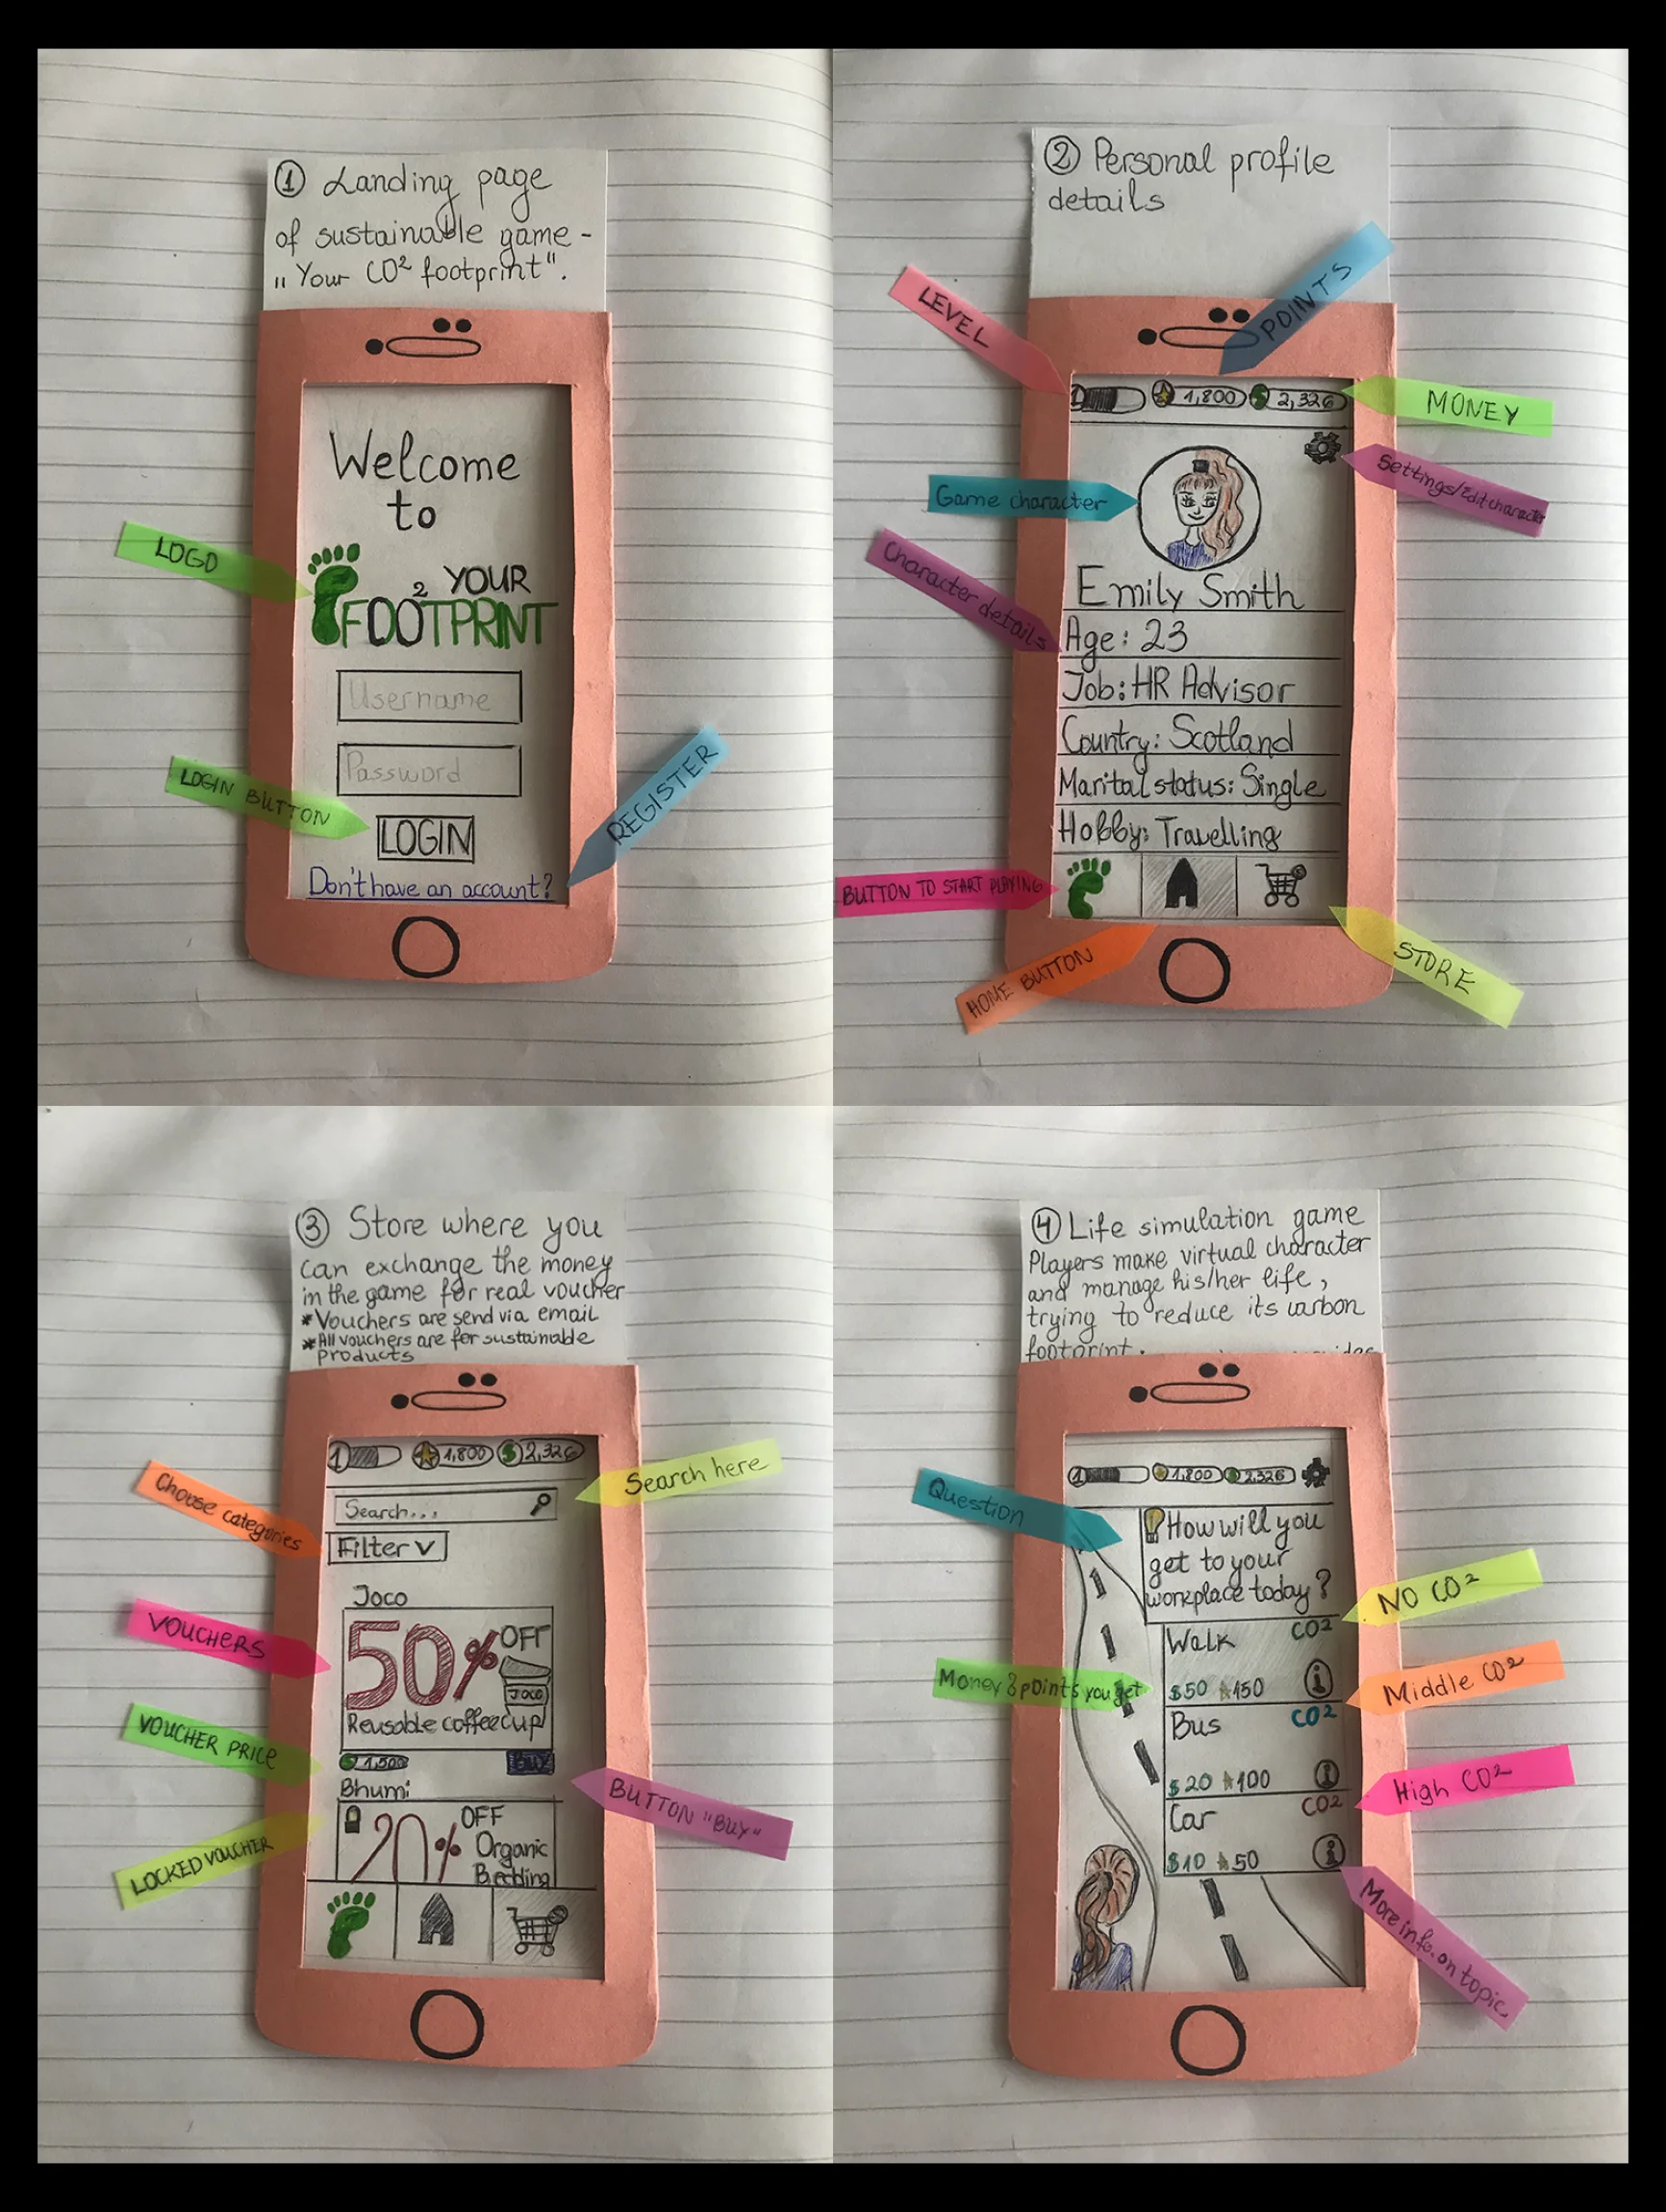 ① Landing page
of sustainable game -
„Your CO² footprint".
Welcome
to
2 YOUR
FOOTPRINT
Username
Password
LOGIN
Don't have an account?
LOGO
LOGIN BUTTON
REGISTER
② Personal profile
details
LEVEL
POINTS
MONEY
1 1,800 $ 2,326
Settings/Edit character
Game character
Character details
Emily Smith
Age: 23
Job: HR Advisor
Country: Scotland
Marital status: Single
Hobby: Travelling
BUTTON TO START PLAYING
HOME BUTTON
STORE
③ Store where you
can exchange the money
in the game for real voucher
* Vouchers are send via email
* All vouchers are for sustainable
products
1 1,800 $ 2,326
Search here
Search...
Choose categories
Filter
Joco
VOUCHERS
50% OFF
JOCO
Reusable coffee cup
VOUCHER PRICE
1,500 BUY
BUTTON "BUY"
Bhumi
LOCKED VOUCHER
20% OFF
Organic
Bedding
④ Life simulation game
Players make virtual character
and manage his/her life,
trying to reduce its carbon
footprint.
1 1,800 $ 2,326
Question
How will you
get to your
workplace today?
NO CO²
Walk CO2
Money & points you get
$50 150 i
Middle CO²
Bus CO2
$20 100 i
High CO²
Car CO2
$10 50 i
More info. on topic